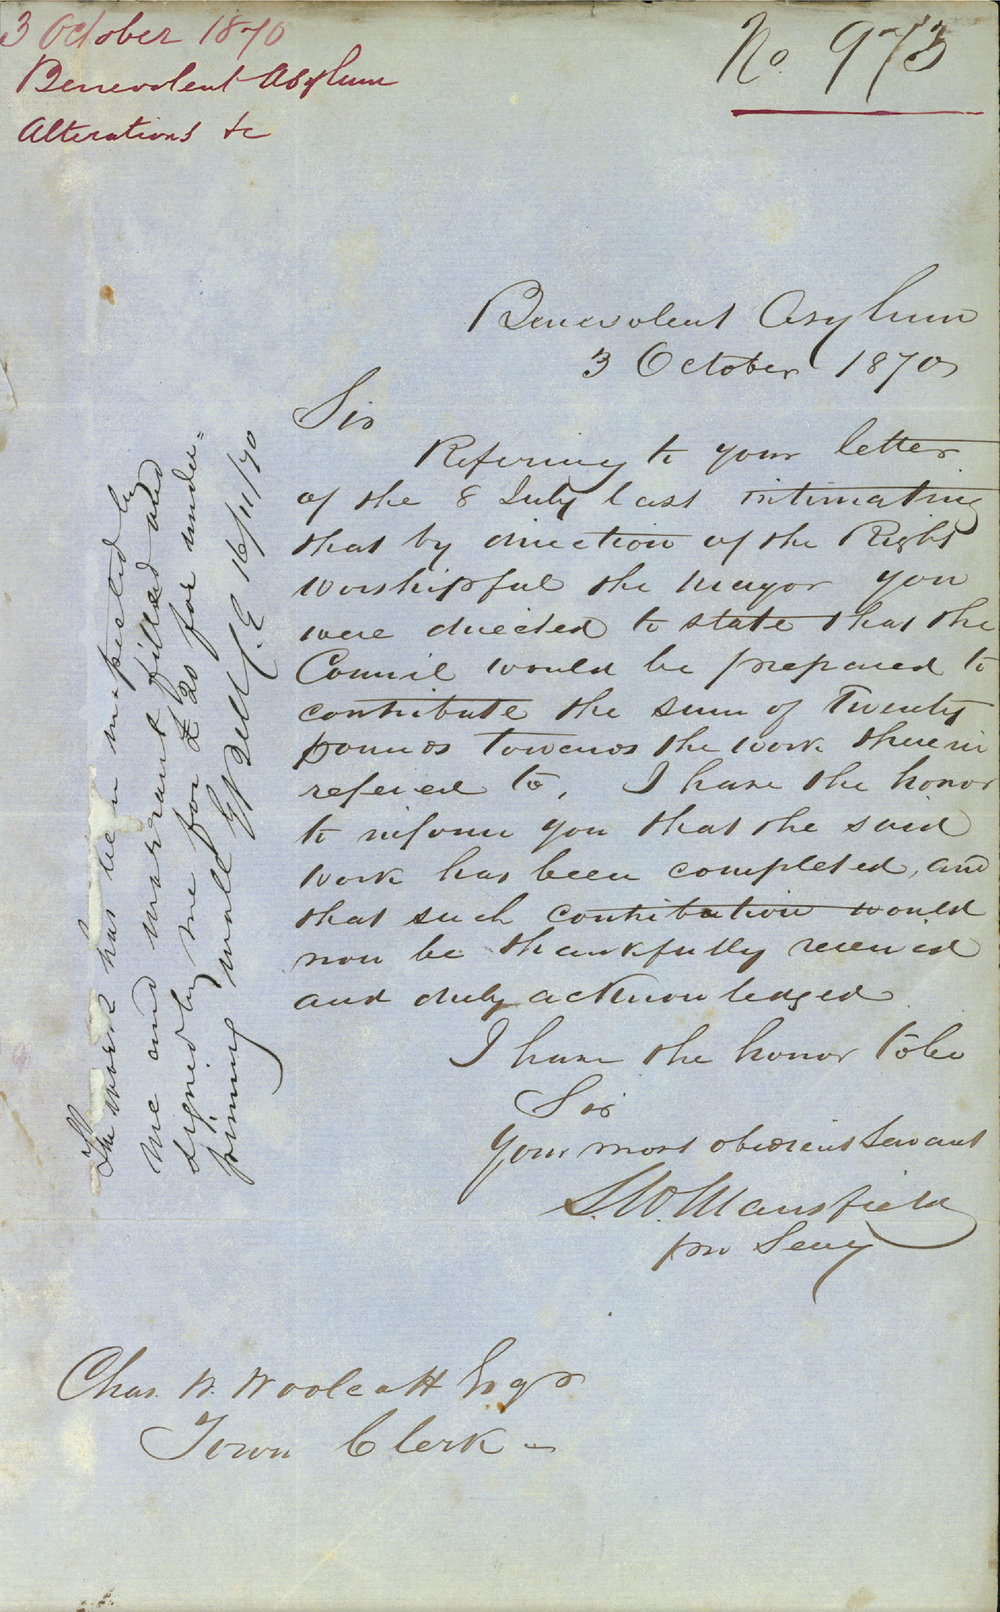 3 October 1870
Benevolent Asylum
Alterations &c
No 973
Benevolent Asylum
3 October 1870
Sir
Referring to your letter
of the 8 July last intimating
that by direction of the Right
Worshipful the Mayor you
were directed to state that the
Council would be prepared to
contribute the sum of Twenty
pounds towards the work therein
refered to, I have the honor
to inform you that the said
work has been completed, and
that such contribution would
now be thankfully received
and duly acknowledged
I have the honor to be
Sir
Your most obedient Servant
S. W. Mansfield
pro Secy
Chas. H. Woolcott Esqr
Town Clerk
The work has been inspected by
me and warrant filled and
signed by me for £20 for under-
pinning wall E Bell C.E 16/11/70